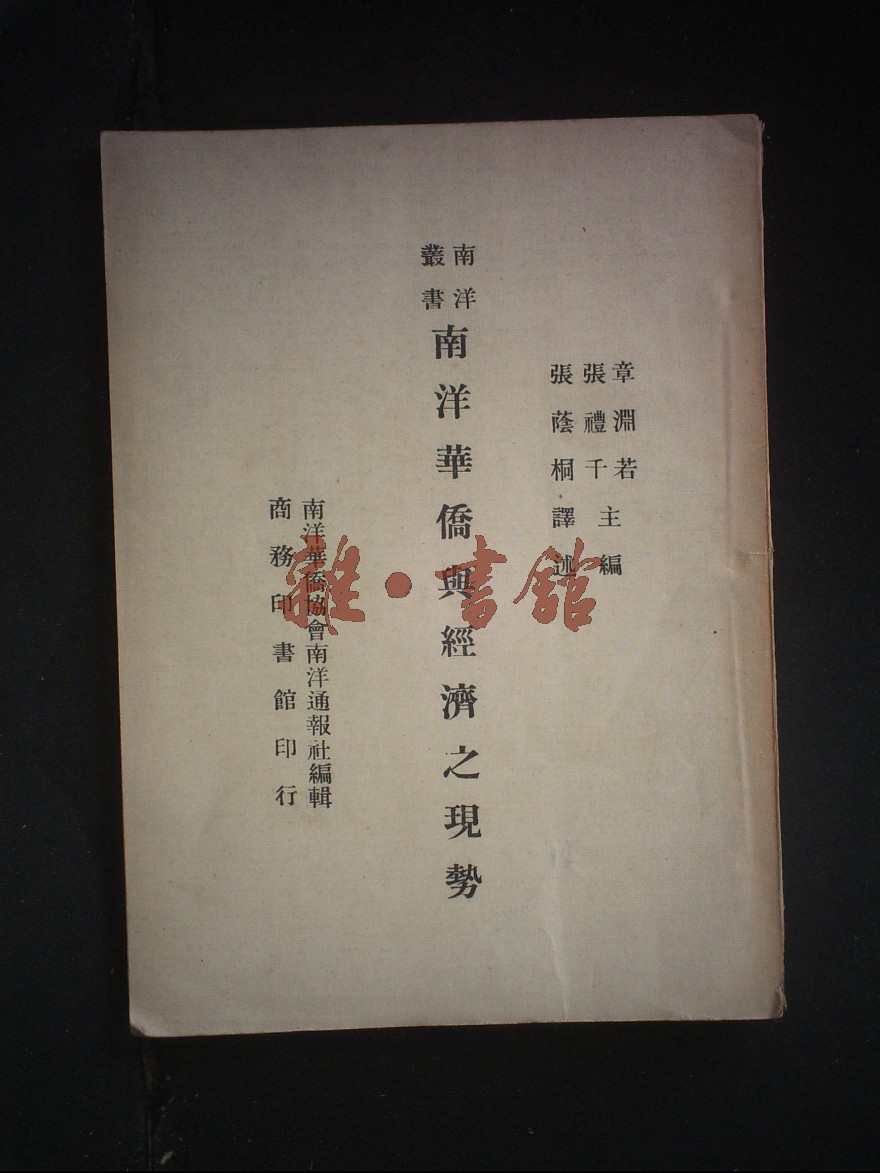 章淵若
張禮千
主編
張蔭桐譯述
南洋
叢書
南洋華僑與經濟之現勢
南洋華僑協會南洋通報社編輯
商務印書館印行
雜·書館